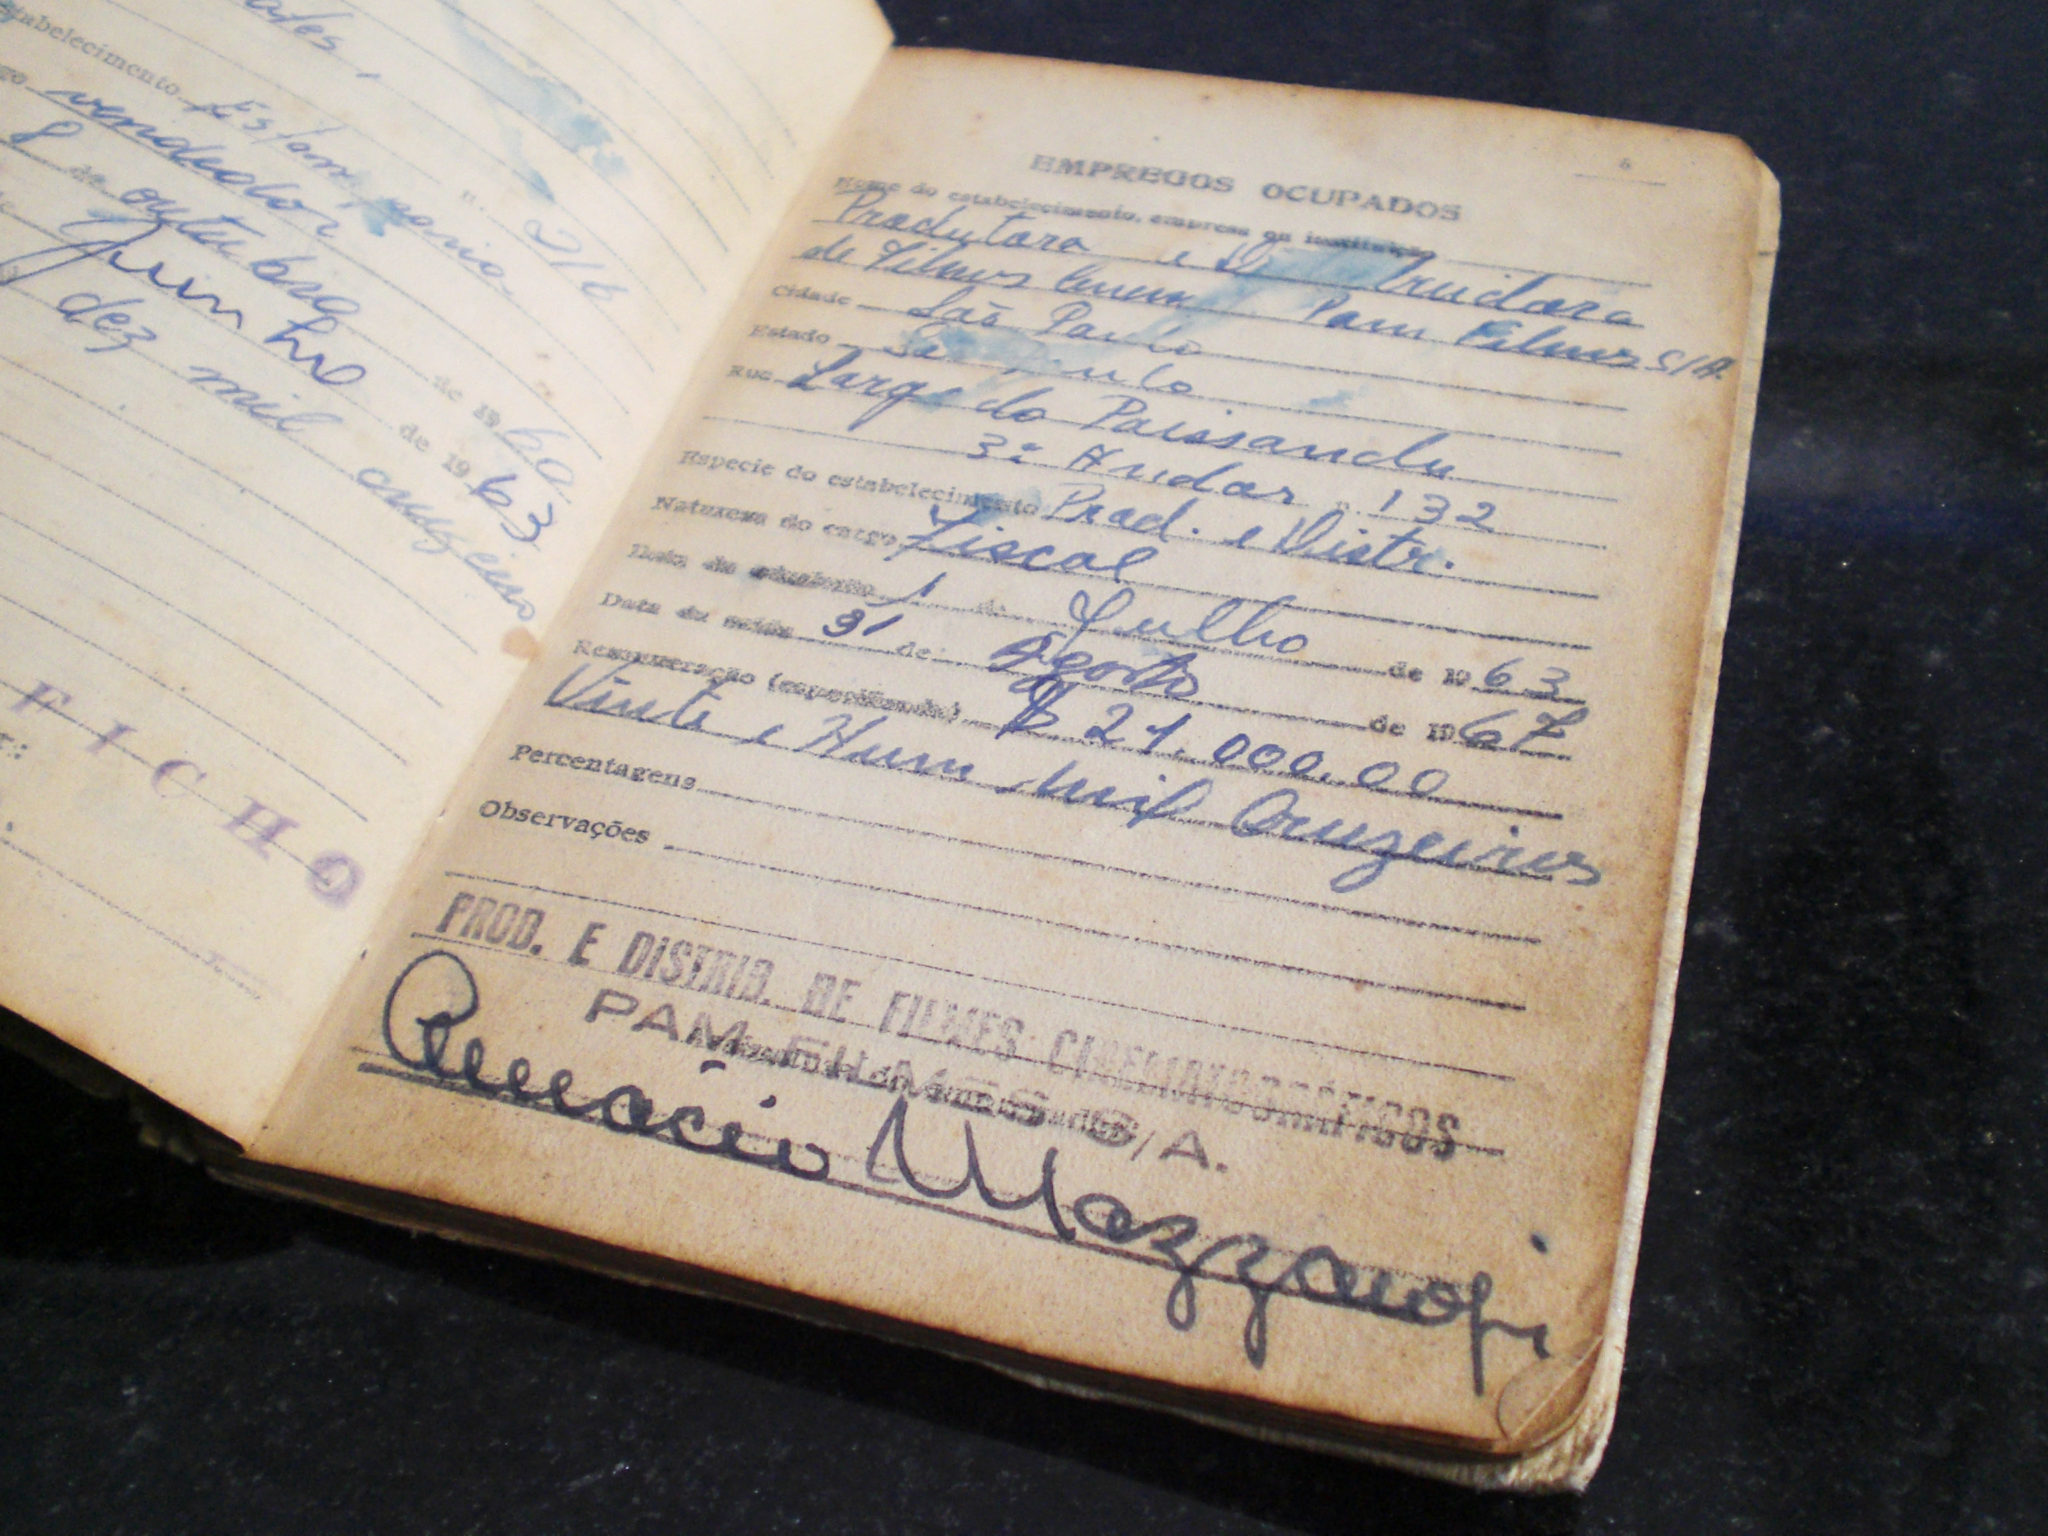 Estabelecimento Estamparia
vendedor
8 de outubro de 1960
Junho de 1963
dez mil cruzeiros
FICHO
6
EMPREGOS OCUPADOS
Nome do estabelecimento, empresa ou instituição
Produtora e
de Filmes Pam Filmes S/A.
Cidade São Paulo
Estado São Paulo
Rua Largo do Paissandu
3º Andar n. 132
Especie do estabelecimento Prod. e Distr.
Natureza do cargo Fiscal
Data da admissão 1 de Julho de 1963
Data da saída 31 de Agosto de 1967
Remuneração (especificada) $ 21.000,00
Vinte e Hum Mil Cruzeiros
Percentagens
Observações
PROD. E DISTRIB. DE FILMES CINEMATOGRÁFICOS
PAM FILMES S/A.
Amacio Mazzaropi